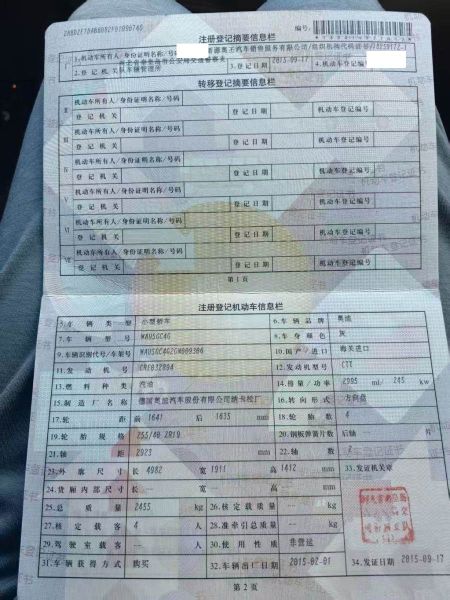 注册登记摘要信息栏
编号:
1.机动车所有人/身份证明名称/号码
销售服务有限公司/组织机构代码证
2.登记机关
3.登记日期 2015-09-17
4.机动车登记编号
转移登记摘要信息栏
II 机动车所有人/身份证明名称/号码
登记机关 登记日期 机动车登记编号
III 机动车所有人/身份证明名称/号码
登记机关 登记日期 机动车登记编号
IV 机动车所有人/身份证明名称/号码
登记机关 登记日期 机动车登记编号
V 机动车所有人/身份证明名称/号码
登记机关 登记日期 机动车登记编号
VI 机动车所有人/身份证明名称/号码
登记机关 登记日期 机动车登记编号
VII 机动车所有人/身份证明名称/号码
登记机关 登记日期 机动车登记编号
第1页
注册登记机动车信息栏
5.车辆类型 小型轿车 6.车辆品牌 奥迪
7.车辆型号 WAUSGC4G 8.车身颜色 灰
9.车辆识别代号/车架号 10.国产/进口 海关进口
11.发动机号 12.发动机型号 CTT
13.燃料种类 汽油 14.排量/功率 2995 ml/ 245 kw
15.制造厂名称 德国奥迪汽车股份有限公司纳卡松厂 16.转向形式 方向盘
17.轮距 前 1641 后 1635 mm 18.轮胎数 4
19.轮胎规格 255/40 ZR19 20.钢板弹簧片数 后轴 片
21.轴距 2923 mm 22.轴数 2
23.外廓尺寸 长 4982 宽 1911 高 1412 mm 33.发证机关章
24.货厢内部尺寸 长 宽 高 mm
25.总质量 2455 kg 26.核定载质量 kg
27.核定载客 4 人 28.准牵引总质量 kg
29.驾驶室载客 人 30.使用性质 非营运
31.车辆获得方式 购买 32.车辆出厂日期 2015-02-01 34.发证日期 2015-09-17
第2页